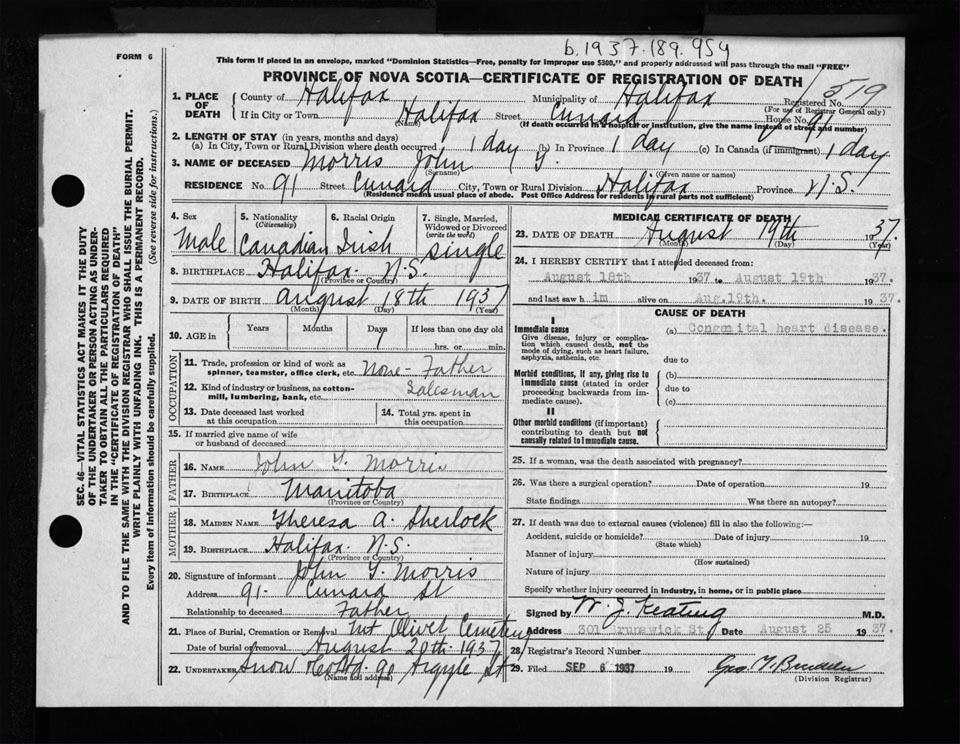 b.1937.189.954
FORM 6
This form if placed in an envelope, marked "Dominion Statistics—Free, penalty for improper use $300," and properly addressed will pass through the mail "FREE"
PROVINCE OF NOVA SCOTIA—CERTIFICATE OF REGISTRATION OF DEATH
1. PLACE OF DEATH
County of Halifax Municipality of Halifax Registered No. 1519
(For use of Registrar General only)
If in City or Town Halifax Street Cunard House No. 91
(Name) (If death occurred in a hospital or institution, give the name instead of street and number)
2. LENGTH OF STAY (in years, months and days)
(a) In City, Town or Rural Division where death occurred 1 day (b) In Province 1 day (c) In Canada (if immigrant) 1 day
3. NAME OF DECEASED Morris John
(Surname) (Given name or names)
RESIDENCE No. 91 Street Cunard City, Town or Rural Division Halifax Province N.S.
(Residence means usual place of abode. Post Office Address for residents in rural parts not sufficient)
4. Sex Male
5. Nationality (Citizenship) Canadian
6. Racial Origin Irish
7. Single, Married, Widowed or Divorced (write the word) Single
8. BIRTHPLACE Halifax. N.S.
(Province or Country)
9. DATE OF BIRTH August 18th 1937
(Month) (Day) (Year)
10. AGE in Years Months Days 1 If less than one day old
hrs. or min.
OCCUPATION
11. Trade, profession or kind of work as spinner, teamster, office clerk, etc. None - Father
12. Kind of industry or business, as cotton-mill, lumbering, bank, etc. Salesman
13. Date deceased last worked at this occupation
14. Total yrs. spent in this occupation
15. If married give name of wife or husband of deceased
FATHER
16. NAME John Morris
17. BIRTHPLACE Manitoba
(Province or Country)
MOTHER
18. MAIDEN NAME Theresa A. Sherlock
19. BIRTHPLACE Halifax. N.S.
(Province or Country)
20. Signature of informant John Morris
Address 91 - Cunard St
Relationship to deceased Father
21. Place of Burial, Cremation or Removal Mt Olivet Cemetery
Date of burial or removal August 20th 1937
22. UNDERTAKER Snow & Co Ltd. 90 Argyle St
(Name and address)
MEDICAL CERTIFICATE OF DEATH
23. DATE OF DEATH August 19th 1937.
(Month) (Day) (Year)
24. I HEREBY CERTIFY that I attended deceased from:
August 18th 1937 to August 19th 1937.
and last saw him alive on Aug.19th. 1937.
CAUSE OF DEATH
I
Immediate cause
Give disease, injury or complication which caused death, not the mode of dying, such as heart failure, asphyxia, asthenia, etc.
(a) Congenital heart disease.
due to
Morbid conditions, if any, giving rise to immediate cause (stated in order proceeding backwards from immediate cause).
(b)
due to
(c)
II
Other morbid conditions (if important) contributing to death but not causally related to immediate cause.
25. If a woman, was the death associated with pregnancy?
26. Was there a surgical operation? Date of operation 19
State findings Was there an autopsy?
27. If death was due to external causes (violence) fill in also the following:—
Accident, suicide or homicide? Date of injury 19
(State which)
Manner of injury
(How sustained)
Nature of injury
Specify whether injury occurred in industry, in home, or in public place
Signed by W. J. Keating M.D.
Address 301 Brunswick St. Date August 25 1937.
28. Registrar's Record Number
29. Filed SEP 6 1937 19 Geo
(Division Registrar)
SEC. 46—VITAL STATISTICS ACT MAKES IT THE DUTY
OF THE UNDERTAKER OR PERSON ACTING AS UNDER-
TAKER TO OBTAIN ALL THE PARTICULARS REQUIRED
IN THE "CERTIFICATE OF REGISTRATION OF DEATH"
AND TO FILE THE SAME WITH THE DIVISION REGISTRAR WHO SHALL ISSUE THE BURIAL PERMIT.
WRITE PLAINLY WITH UNFADING INK. THIS IS A PERMANENT RECORD.
Every item of information should be carefully supplied. (See reverse side for instructions.)